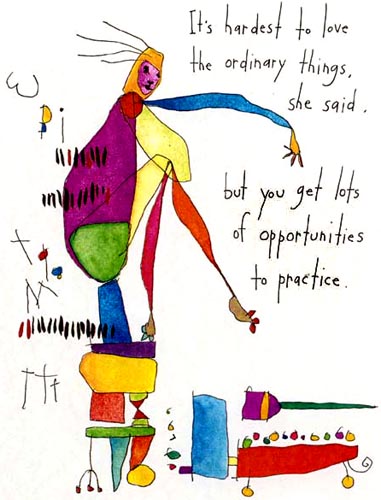 It's hardest to love
the ordinary things,
she said.
but you get lots
of opportunities
to practice.